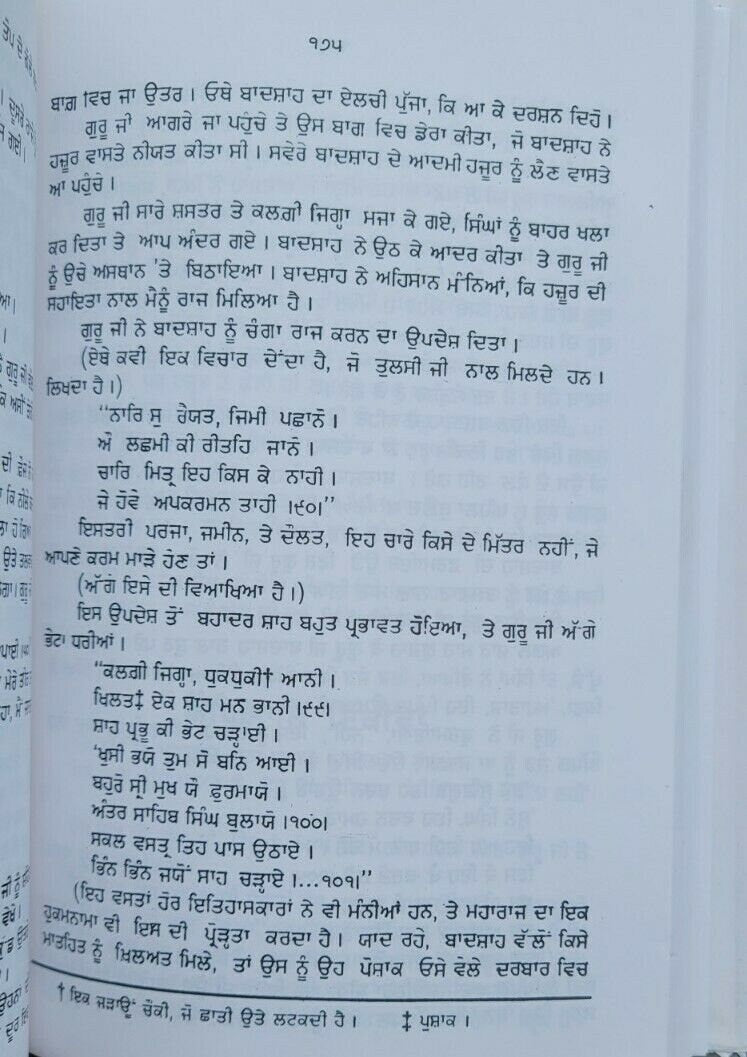 ੧੭੫
ਬਾਗ਼ ਵਿਚ ਜਾ ਉਤਰ । ਓਥੇ ਬਾਦਸ਼ਾਹ ਦਾ ਏਲਚੀ ਪੁੱਜਾ, ਕਿ ਆ ਕੇ ਦਰਸ਼ਨ ਦਿਹੋ ।
ਗੁਰੂ ਜੀ ਆਗਰੇ ਜਾ ਪਹੁੰਚੇ ਤੇ ਉਸ ਬਾਗ ਵਿਚ ਡੇਰਾ ਕੀਤਾ, ਜੋ ਬਾਦਸ਼ਾਹ ਨੇ
ਹਜ਼ੂਰ ਵਾਸਤੇ ਨੀਯਤ ਕੀਤਾ ਸੀ । ਸਵੇਰੇ ਬਾਦਸ਼ਾਹ ਦੇ ਆਦਮੀ ਹਜ਼ੂਰ ਨੂੰ ਲੈਣ ਵਾਸਤੇ
ਆ ਪਹੁੰਚੇ ।
ਗੁਰੂ ਜੀ ਸਾਰੇ ਸ਼ਸਤਰ ਤੇ ਕਲਗ਼ੀ ਜਿਗ੍ਹਾ ਸਜਾ ਕੇ ਗਏ, ਸਿੰਘਾਂ ਨੂੰ ਬਾਹਰ ਖਲਾ
ਕਰ ਦਿਤਾ ਤੇ ਆਪ ਅੰਦਰ ਗਏ । ਬਾਦਸ਼ਾਹ ਨੇ ਉਠ ਕੇ ਆਦਰ ਕੀਤਾ ਤੇ ਗੁਰੂ ਜੀ
ਨੂੰ ਉਚੇ ਅਸਥਾਨ 'ਤੇ ਬਿਠਾਇਆ । ਬਾਦਸ਼ਾਹ ਨੇ ਅਹਿਸਾਨ ਮੰਨਿਆਂ, ਕਿ ਹਜ਼ੂਰ ਦੀ
ਸਹਾਇਤਾ ਨਾਲ ਮੈਨੂੰ ਰਾਜ ਮਿਲਿਆ ਹੈ ।
ਗੁਰੂ ਜੀ ਨੇ ਬਾਦਸ਼ਾਹ ਨੂੰ ਚੰਗਾ ਰਾਜ ਕਰਨ ਦਾ ਉਪਦੇਸ਼ ਦਿਤਾ ।
(ਏਥੇ ਕਵੀ ਇਕ ਵਿਚਾਰ ਦੇਂਦਾ ਹੈ, ਜੋ ਤੁਲਸੀ ਜੀ ਨਾਲ ਮਿਲਦੇ ਹਨ ।
ਲਿਖਦਾ ਹੈ ।)
“ਨਾਰਿ ਸੁ ਰੇਯਤ, ਜਿਮੀ ਪਛਾਨੋ ।
ਔ ਲਛਮੀ ਕੀ ਰੀਤਹਿ ਜਾਨੋ ।
ਚਾਰਿ ਮਿਤ੍ਰ ਇਹ ਕਿਸ ਕੇ ਨਾਹੀ ।
ਜੇ ਹੋਵੇ ਅਪਕਰਮਨ ਤਾਹੀ ।੯੦।”
ਇਸਤਰੀ ਪਰਜਾ, ਜਮੀਨ, ਤੇ ਦੌਲਤ, ਇਹ ਚਾਰੇ ਕਿਸੇ ਦੇ ਮਿੱਤਰ ਨਹੀਂ, ਜੇ
ਆਪਣੇ ਕਰਮ ਮਾੜੇ ਹੋਣ ਤਾਂ ।
(ਅੱਗੇ ਇਸੇ ਦੀ ਵਿਆਖਿਆ ਹੈ ।)
ਇਸ ਉਪਦੇਸ਼ ਤੋਂ ਬਹਾਦਰ ਸ਼ਾਹ ਬਹੁਤ ਪ੍ਰਭਾਵਤ ਹੋਇਆ, ਤੇ ਗੁਰੂ ਜੀ ਅੱਗੇ
ਭੇਟਾ ਧਰੀਆਂ ।
“ਕਲਗ਼ੀ ਜਿਗ੍ਹਾ, ਧੁਕਧੁਕੀ† ਆਨੀ ।
ਖਿਲਤ‡ ਏਕ ਸ਼ਾਹ ਮਨ ਭਾਨੀ ।੯੯।
ਸ਼ਾਹ ਪ੍ਰਭੂ ਕੀ ਭੇਟ ਚੜ੍ਹਾਈ ।
'ਖੁਸੀ ਭਯੋ ਤੁਮ ਸੋ ਬਨਿ ਆਈ ।
ਬਹੁਰੋ ਸ੍ਰੀ ਮੁਖ ਯੌ ਫੁਰਮਾਯੋ ।
ਅੰਤਰ ਸਾਹਿਬ ਸਿੰਘ ਬੁਲਾਯੋ ।੧੦੦।
ਸਕਲ ਵਸਤ੍ਰ ਤਿਹ ਪਾਸ ਉਠਾਏ ।
ਭਿੰਨ ਭਿੰਨ ਜਯੋਂ ਸਾਹ ਚੜ੍ਹਾਏ ।...੧੦੧।”
(ਇਹ ਵਸਤਾਂ ਹੋਰ ਇਤਿਹਾਸਕਾਰਾਂ ਨੇ ਵੀ ਮੰਨੀਆਂ ਹਨ, ਤੇ ਮਹਾਰਾਜ ਦਾ ਇਕ
ਹੁਕਮਨਾਮਾ ਵੀ ਇਸ ਦੀ ਪ੍ਰੋੜ੍ਹਤਾ ਕਰਦਾ ਹੈ । ਯਾਦ ਰਹੇ, ਬਾਦਸ਼ਾਹ ਵੱਲੋਂ ਕਿਸੇ
ਮਾਤਹਿਤ ਨੂੰ ਖ਼ਿਲਅਤ ਮਿਲੇ, ਤਾਂ ਉਸ ਨੂੰ ਉਹ ਪੋਸ਼ਾਕ ਓਸੇ ਵੇਲੇ ਦਰਬਾਰ ਵਿਚ
† ਇਕ ਜੜਾਊਂ ਚੌਕੀ, ਜੋ ਛਾਤੀ ਉਤੇ ਲਟਕਦੀ ਹੈ । ‡ ਪੁਸ਼ਾਕ ।